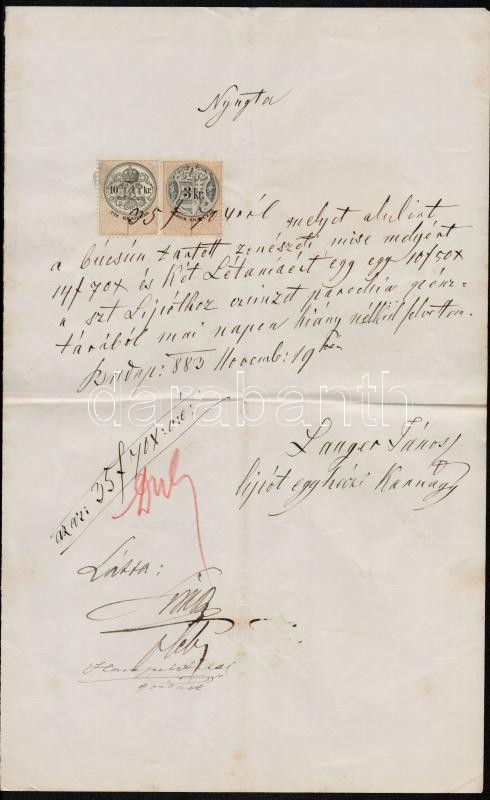 Nyugta
10 kr.
3 kr.
35 f 70x ról melyet alulirt
a búcsún tartott zenészeti mise melyért
14 f 70x és két Létaniáért egy egy 10 f 50x
a szt Lipóthoz czimzet parochia pénz-
tárából mai napon hiány nélkül felvettem.
Budap: 883 Novemb: 19
darabanth
azaz: 35 f 70x: o.é:
Langer János
lipót egyházi Karnagy
Látta:
gondnok